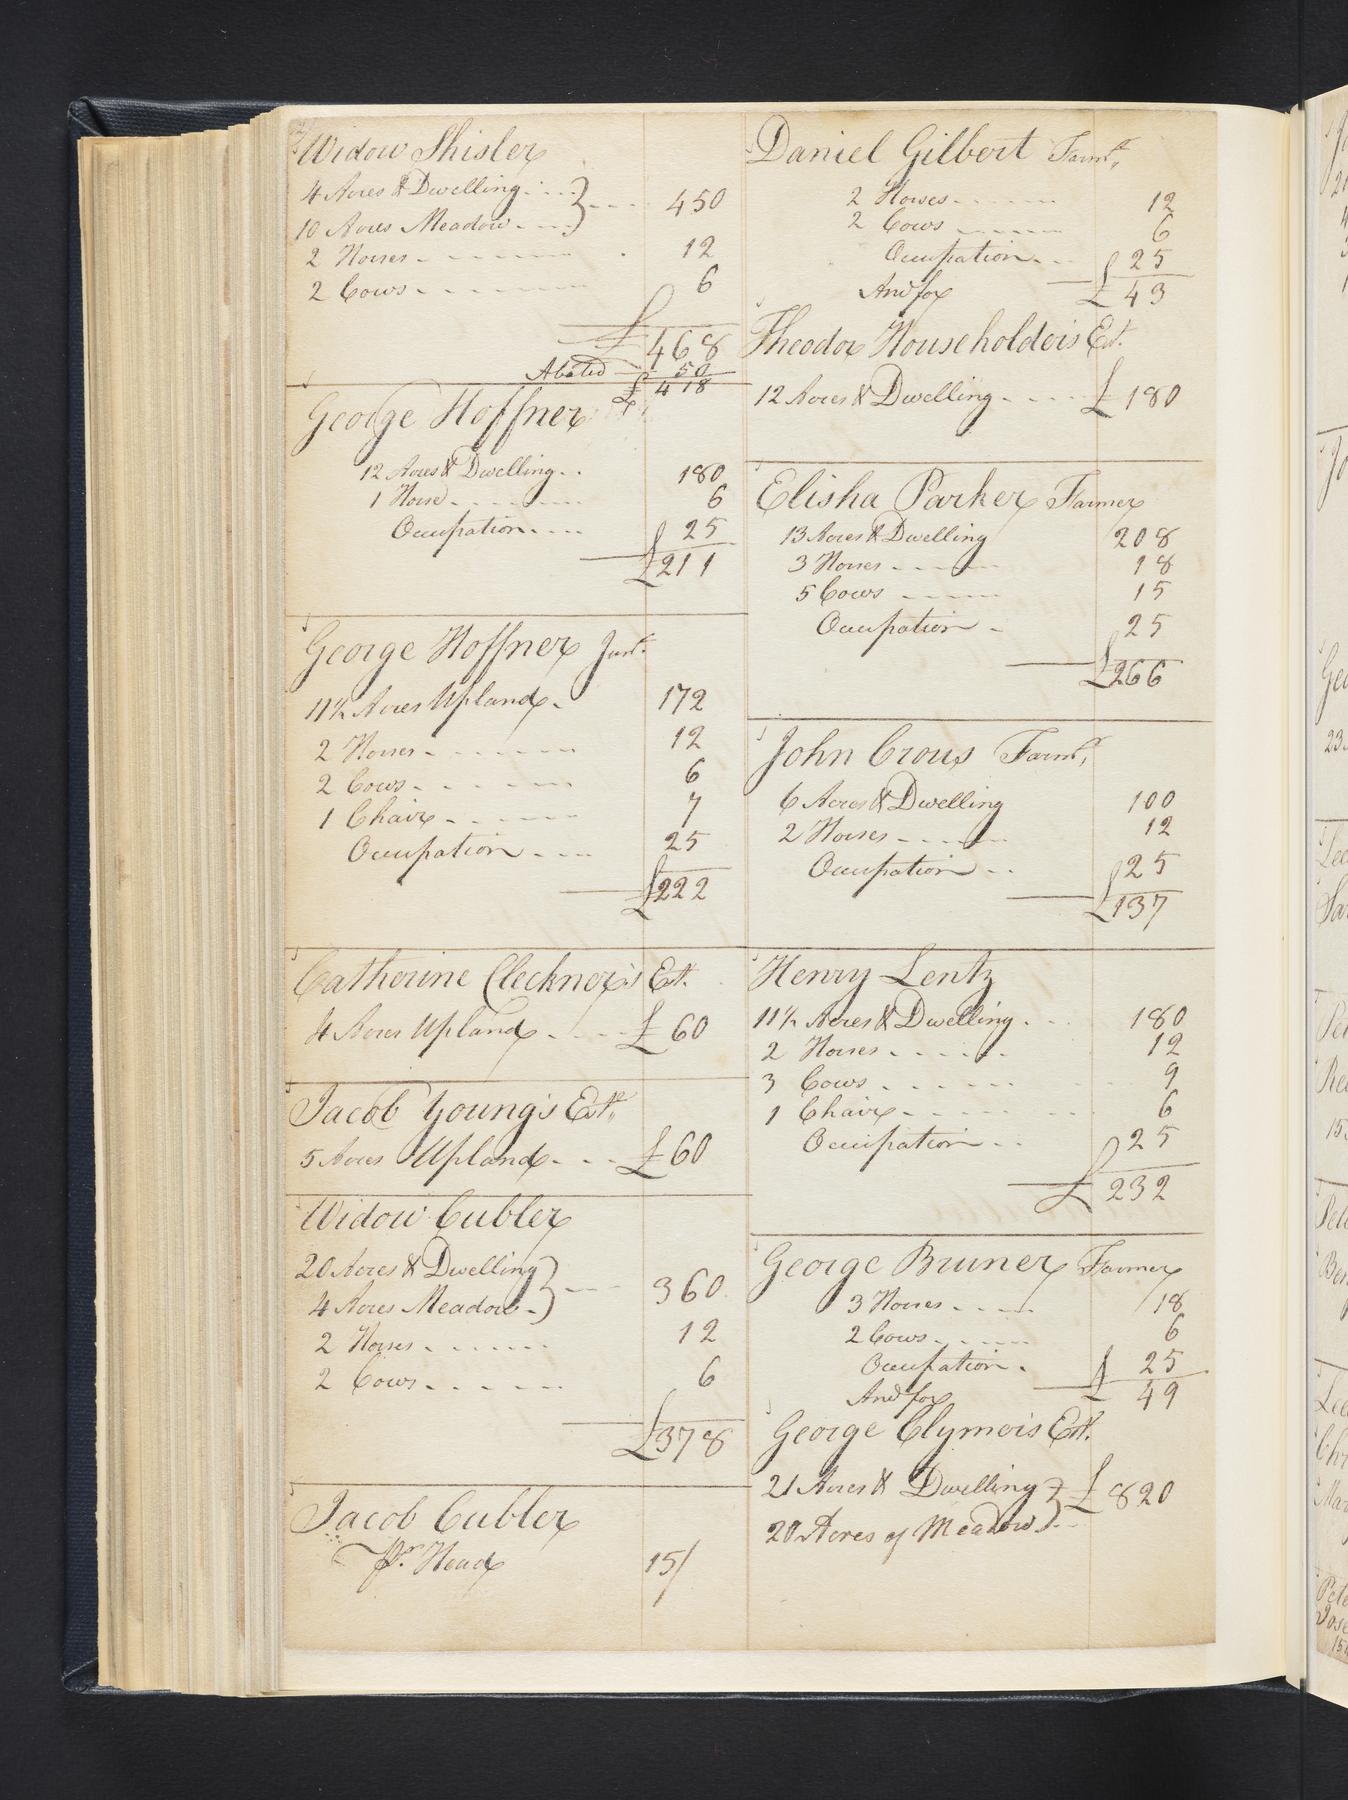 Widow Shisler
4 Acres & Dwelling
10 Acres Meadow 450
2 Horses 12
2 Cows 6
£ 468
Abated 50
£ 418
George Hoffner
12 Acres & Dwelling 180
1 Horse 6
Occupation 25
£ 211
George Hoffner Junr.
11½ Acres Upland 172
2 Horses 12
2 Cows 6
1 Chair 7
Occupation 25
£ 222
Catherine Cleckner's Est.
4 Acres Upland £ 60
Jacob Young's Est.
5 Acres Upland £ 60
Widow Cubler
20 Acres & Dwelling
4 Acres Meadow 360
2 Horses 12
2 Cows 6
£ 378
Jacob Cubler
Pr. Head 15/
Daniel Gilbert Farmr.
2 Horses 12
2 Cows 6
Occupation 25
And for £ 43
Theodor Householder's Est.
12 Acres & Dwelling £ 180
Elisha Parker Farmer
13 Acres & Dwelling 208
3 Horses 18
5 Cows 15
Occupation 25
£ 266
John Crous Farmr.
6 Acres & Dwelling 100
2 Horses 12
Occupation 25
£ 137
Henry Lentz
11½ Acres & Dwelling 180
2 Horses 12
3 Cows 9
1 Chair 6
Occupation 25
£ 232
George Bruner Farmer
3 Horses 18
2 Cows 6
Occupation 25
And for £ 49
George Clymer's Est.
21 Acres & Dwelling £ 820
20 Acres of Meadow